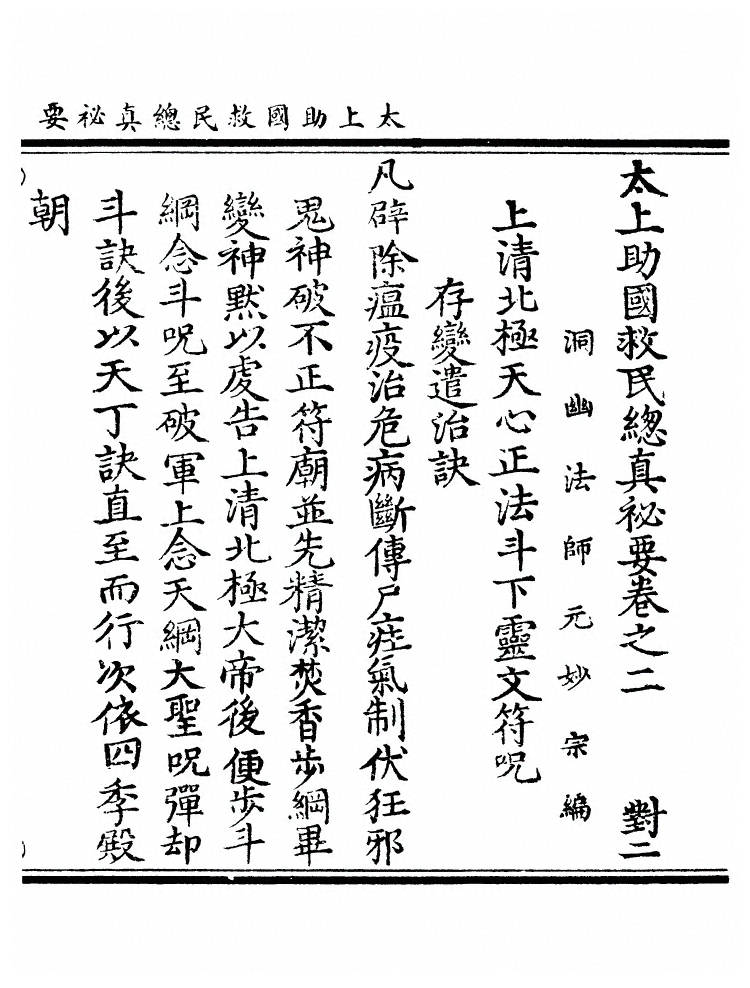 太上助國救民總真祕要
太上助國救民總真祕要卷之二　對二
洞幽法師元妙宗編
上清北極天心正法斗下靈文符呪
存變遣治訣
凡辟除瘟疫治危病斷傳尸疰氣制伏狂邪
鬼神破不正符廟並先精潔焚香步綱畢
變神默以虔告上清北極大帝後便步斗
綱念斗呪至破軍上念天綱大聖呪彈却
斗訣後以天丁訣直至而行次依四季殿
朝